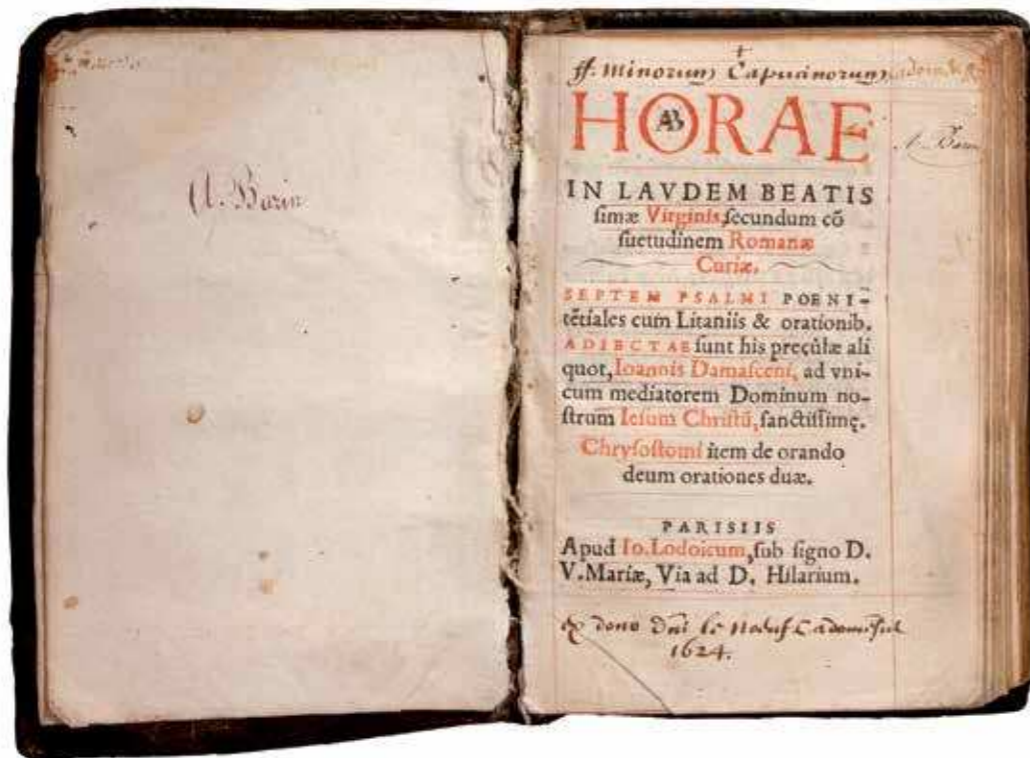 A. Barin
ff. Minorum Capucinorum
HORAE
AB
IN LAVDEM BEATIS
ſimæ Virginis, ſecundum cõ
ſuetudinem Romanæ
Curiæ.
SEPTEM PSALMI POENI-
tẽtiales cum Litaniis & orationib.
ADIECTAE ſunt his precũlæ ali
quot, Ioannis Damaſceni, ad vni-
cum mediatorem Dominum no-
ſtrum Ieſum Chriſtũ, ſanctiſſimę.
Chryſoſtomi item de orando
deum orationes duæ.
PARISIIS
Apud Io. Lodoicum, ſub ſigno D.
V. Mariæ, Via ad D. Hilarium.
ex dono Dñi le
1624.